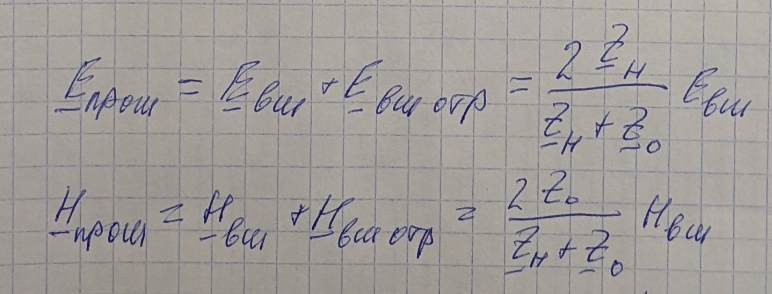 E̲прош = E̲вш + E̲вш отр = 2 Z̲н / (Z̲н + Z̲о) Eвш
H̲прош = H̲вш + H̲вш отр = 2 Zо / (Z̲н + Z̲о) Hвш